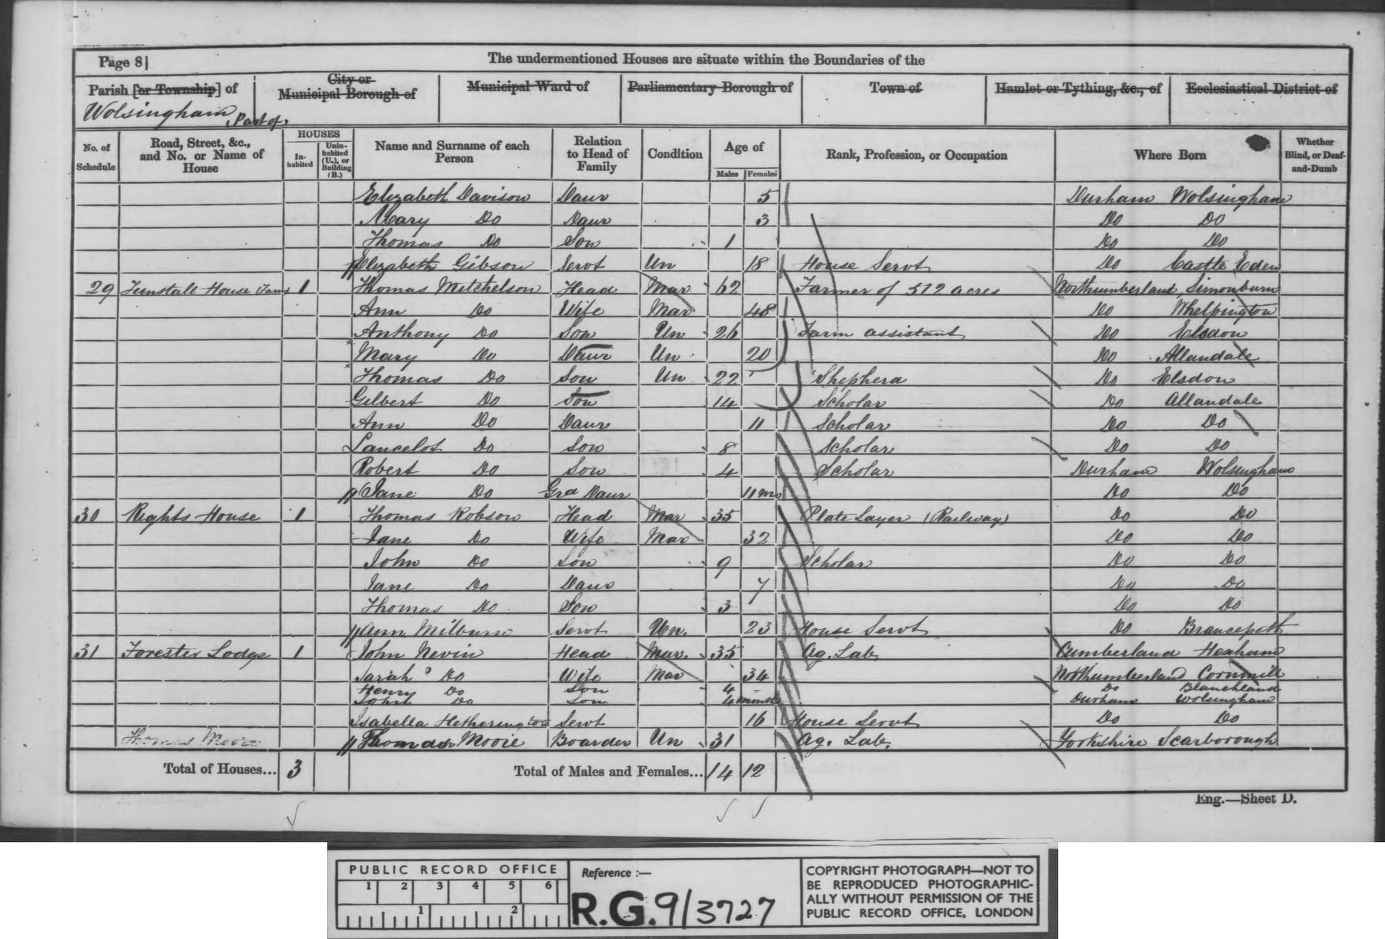 Page 8|
The undermentioned Houses are situate within the Boundaries of the
Parish [or Township] of
City or Municipal Borough of
Municipal Ward of
Parliamentary Borough of
Town of
Hamlet or Tything, &c., of
Ecclesiastical District of
Wolsingham, Part of,
No. of Schedule
Road, Street, &c., and No. or Name of House
HOUSES
In-habited
Unin-habited (U.), or Building (B.)
Name and Surname of each Person
Relation to Head of Family
Condition
Age of
Males
Females
Rank, Profession, or Occupation
Where Born
Whether Blind, or Deaf-and-Dumb
Elizabeth Davison Daur 5 Durham Wolsingham
Mary Do Daur 3 Do Do
Thomas Do Son 1 Do Do
Elizabeth Gibson Servt Un 18 House Servt Do Castle Eden
29 Tunstall House Farm 1 Thomas Mitchelson Head Mar 62 Farmer of 512 acres Northumberland Simonburn
Ann Do Wife Mar 48 Do Whelpington
Anthony Do Son Un 26 Farm assistant Do Elsdon
Mary Do Daur Un 20 Do Allandale
Thomas Do Son Un 22 Shepherd Do Elsdon
Gilbert Do Son 14 Scholar Do Allandale
Ann Do Daur 11 Scholar Do Do
Lancelot Do Son 8 Scholar Do Do
Robert Do Son 4 Scholar Durham Wolsingham
Jane Do Grd Daur 11 mo Do Do
30 Rights House 1 Thomas Robson Head Mar 35 Plate Layer (Railway) Do Do
Jane Do Wife Mar 32 Do Do
John Do Son 9 Scholar Do Do
Jane Do Daur 7 Do Do
Thomas Do Son 3 Do Do
Ann Milburn Servt Un. 23 House Servt Do Brancepeth
31 Forester Lodge 1 John Nevin Head Mar. 35 Ag. Lab. Cumberland Hexham
Sarah Do Wife Mar 34 Northumberland Cornmill
Henry Do Son 4 Do Blanchland
John Do Son Durham Wolsingham
Isabella Hetherington Servt 16 House Servt Do Do
Thomas Moore Thomas Moore Boarder Un 31 Ag. Lab. Yorkshire Scarborough
Total of Houses... 3 Total of Males and Females... 14 12
Eng.—Sheet D.
PUBLIC RECORD OFFICE
1 2 3 4 5 6
1 2
Reference :—
R.G. 9/3727
COPYRIGHT PHOTOGRAPH—NOT TO
BE REPRODUCED PHOTOGRAPHIC-
ALLY WITHOUT PERMISSION OF THE
PUBLIC RECORD OFFICE, LONDON